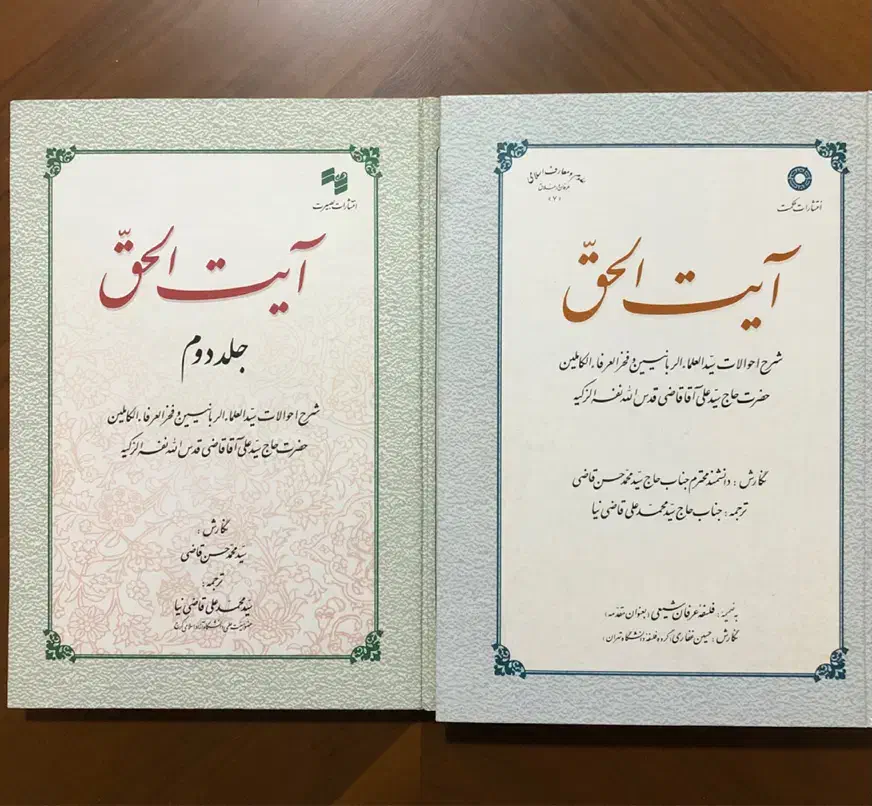 انتشارات حکمت
آیت الحقّ
شرح احوالات سیّد العلماء الربانیین و فخر العرفاء الکاملین
حضرت حاج سیّد علی آقا قاضی قدس الله نفسه الزکیه
نگارش : دانشمند محترم جناب حاج سیّد محمّد حسن قاضی
ترجمه : جناب حاج سیّد محمّد علی قاضی نیا
به ضمیمه : فلسفه عرفان شیعی (بعنوان مقدّمه)
نگارش : حسین غفاری (گروه فلسفه دانشگاه تهران)
انتشارات بصیرت
آیت الحقّ
جلد دوم
شرح احوالات سیّد العلماء الربانیین و فخر العرفاء الکاملین
حضرت حاج سیّد علی آقا قاضی قدس الله نفسه الزکیه
نگارش :
سیّد محمّد حسن قاضی
ترجمه :
سیّد محمّد علی قاضی نیا
عضو هیئت علمی دانشگاه آزاد اسلامی کرج